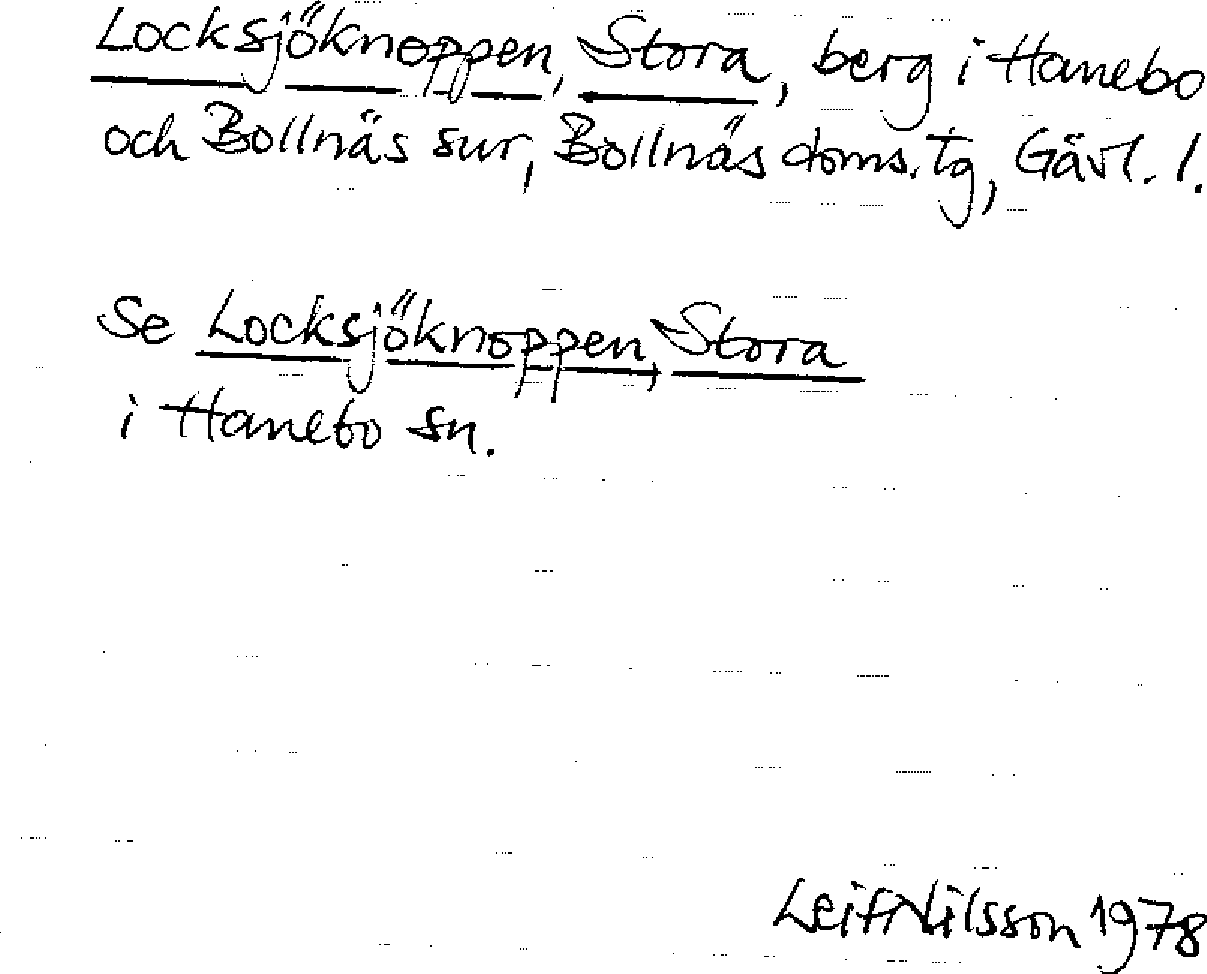 Locksjöknoppen, Stora, berg i Hanebo
och Bollnäs snr, Bollnäs doms.tg, Gävl. l.
Se Locksjöknoppen, Stora
i Hanebo sn.
Leif Nilsson 1978